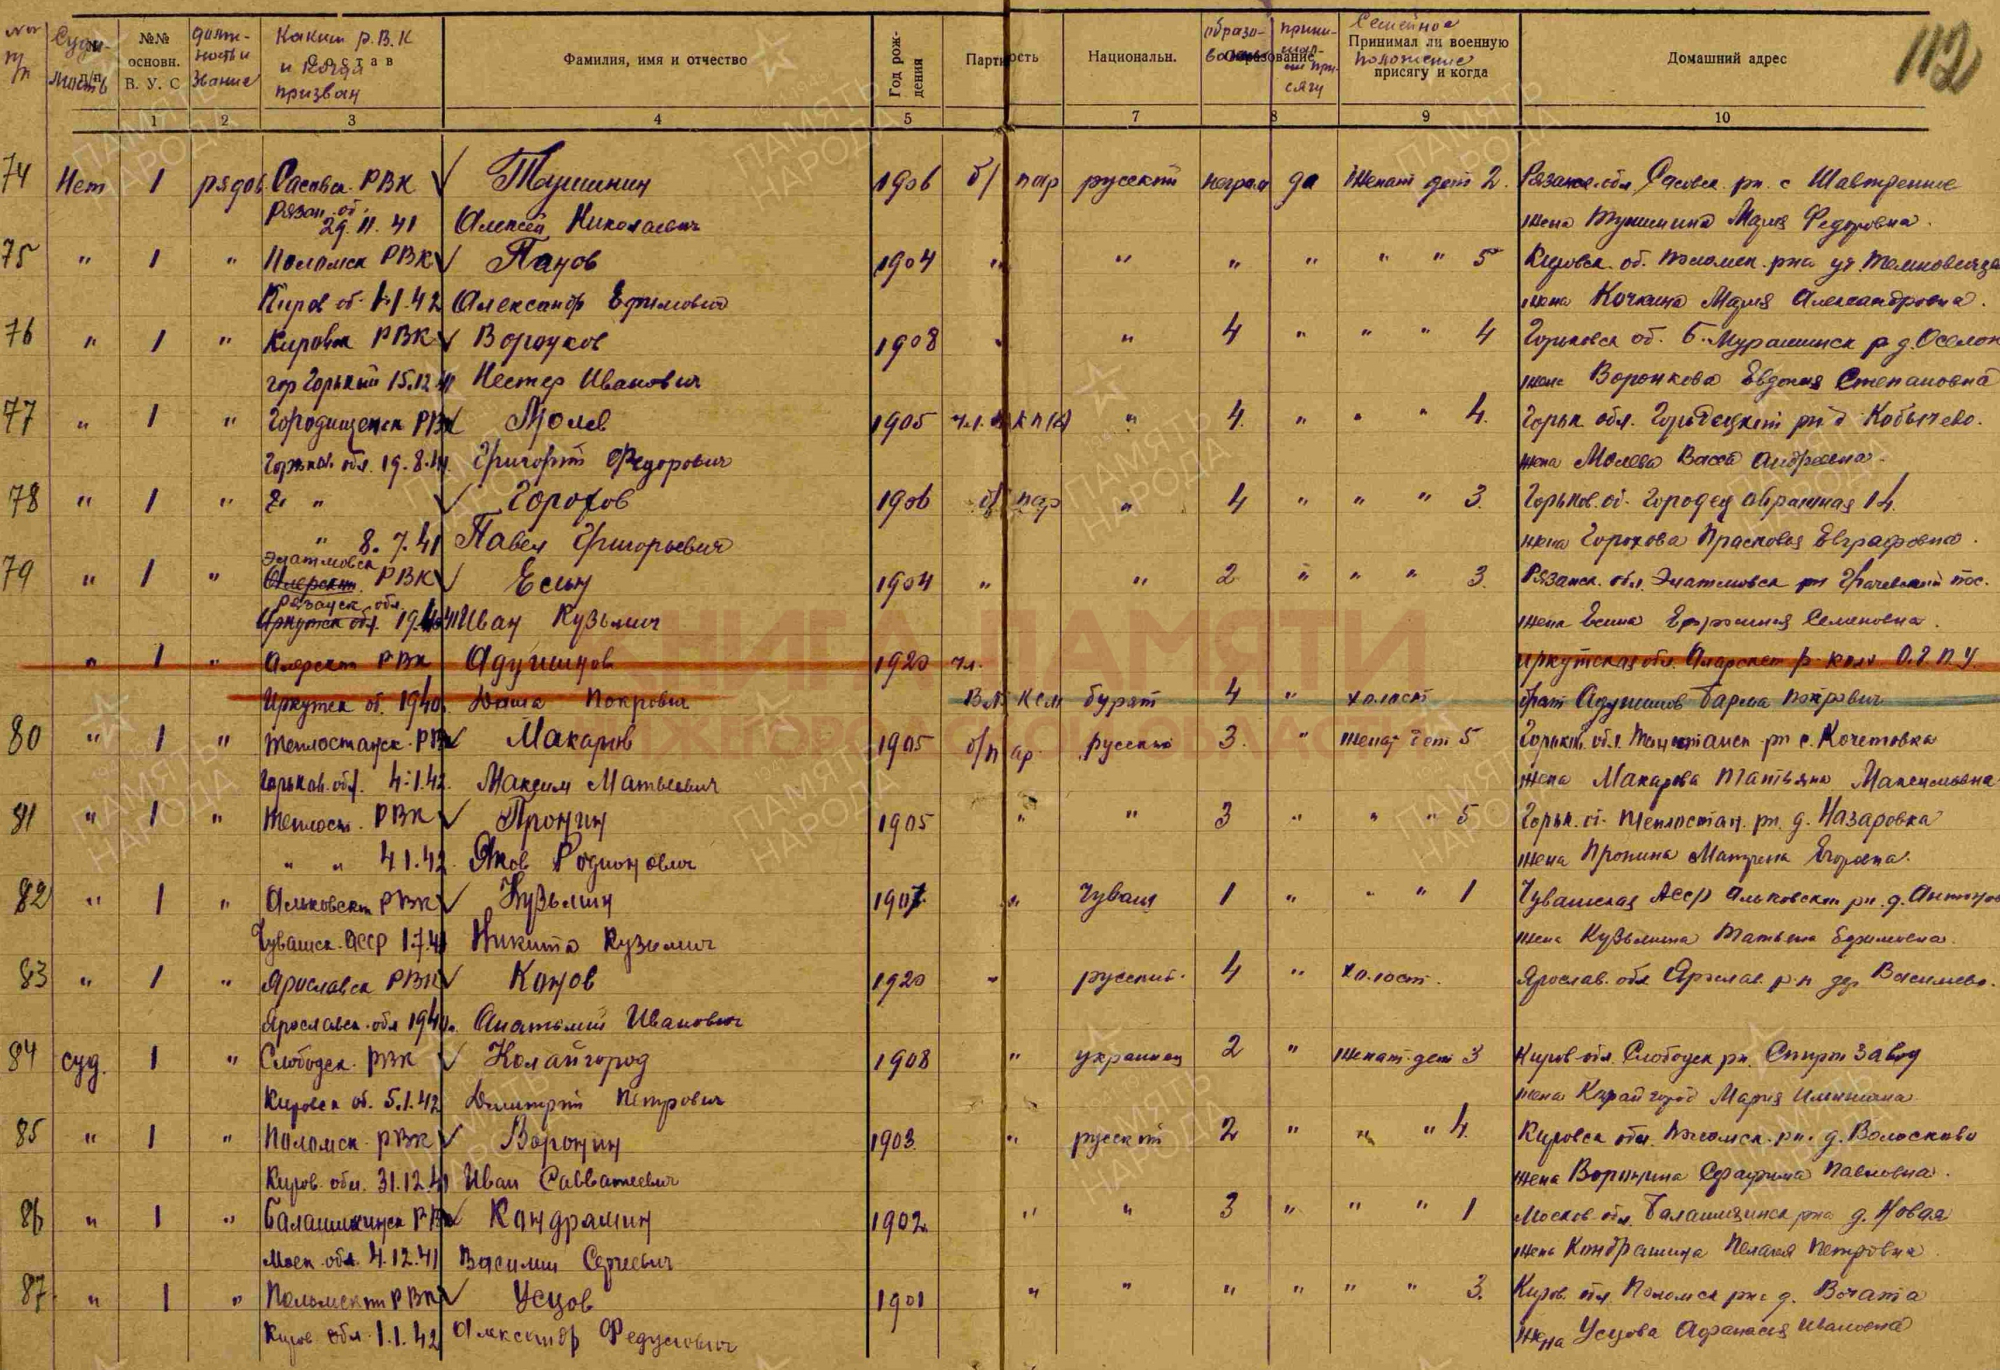 №№ п/п Суди-мость №№ основн. В. У. С должность и звание Каким Р.В.К и когда призван Состав Фамилия, имя и отчество Год рождения Партийность Национальн. Образование Принимал ли военную присягу и когда Семейное положение Домашний адрес 112
1 2 3 4 5 7 8 9 10
74 Нет 1 рядов Сасовск. РВК Тушинин 1906 б/ пар русский неграм да Женат дет 2. Рязанск. обл. Сасовск. рн. с
Рязан. об. 29. 11. 41 Алексей Николаевич жена Тушинина Мария Федоровна.
75 " 1 " Поломск РВК Панов 1904 " " " " " " 5 Кировск. об. Поломск. рна
Киров об. 1.1.42 Александр Ефимович жена Кочкина Мария Александровна.
76 " 1 " Кировск РВК Воронков 1908 " " 4 " " " 4 Горьковск об. Б. Мурашкинск р д.
гор Горький 15.12.41 Нестер Иванович жена Воронкова Евдокия Степановна
77 " 1 " РВК Молев 1905 чл. ВКП(б) " 4. " " " 4. Горьк обл. рн д Кобычево.
Горьков. обл. 19.8.41. Григорий Федорович жена Молева Васса Андреевна.
78 " 1 " " Горохов 1906 б/ пар " 4 " " " 3. Горьков. об. Городец 14.
" 8. 7. 41 Павел Григорьевич жена Горохова Прасковья Евграфовна.
79 " 1 " Элатмовск Аларский РВК Есин 1904 " " 2 " " " 3. Рязанск. обл. Элатмовск рн пос.
Рязанск обл. Иркутск обл. Иван Кузьмич жена Есина Ефросиния Семеновна.
" 1 " Аларский РВК Адушинов 1920 чл. Иркутская обл. Аларский р-
Иркутск об. 1940. Даша Покрович ВЛКСМ бурят 4 " холост брат Адушинов Барма Покрович
80 " 1 " Теплостанск. РВК Макаров 1905 б/пар. Русский 3. " женат дет 5 Горьков. обл. рн с. Кочетовка
Горьков. обл. 4.1.42. Максим Матвеевич жена Макарова Татьяна Максимовна
81 " 1 " Теплост. РВК Пронин 1905 " " 3 " " " 5 Горьк. об. Теплостан. рн. д. Назаровка
" " 4 1.42. Яков Родионович жена Пронина Матрена Егоровна.
82 " 1 " Альковский РВК Кузьмин 1907. " Чуваш 1 " " " 1 Чувашская АССР Альковский рн. д.
Чувашск. АССР 1.7.41 Никита Кузьмич жена Кузьмина Татьяна Ефимовна.
83 " 1 " Ярославск РВК Конов 1920 " русский. 4 " холост. Ярослав. обл Ярослав. р-н дер Васильево.
Ярославск. обл 1940. Анатолий Иванович
84 суд. 1 " Слободск. РВК Колайгород 1908 " украинец 2 " женат. дет 3 Киров обл. Слободск рн. Спирт завод
Кировск об. 5.1.42 Дмитрий Петрович жена Мария
85 " 1 " Поломск. РВК Воронин 1903. " русский 2 " " " 4. Кировск обл. Поломск. рн. д. Волосково
Киров. обл. 31.12.41 Иван Савватеевич жена Воронина Серафима Павловна.
86 " 1 " Балашихинск РВК Кондрашин 1902. " " 3 " " " 1 Москов. обл. рна д. Новая
Моск. обл. 4.12.41 Василий Сергеевич жена Кондрашина Пелагея Петровна.
87 " 1 " Поломский РВК Усцов 1901 " " " " " " 3. Киров. обл. Поломск рн д. Вочата
Киров обл. 1.1.42 Александр жена Усцова Афанасия Ивановна
ПАМЯТЬ НАРОДА
КНИГА ПАМЯТИ